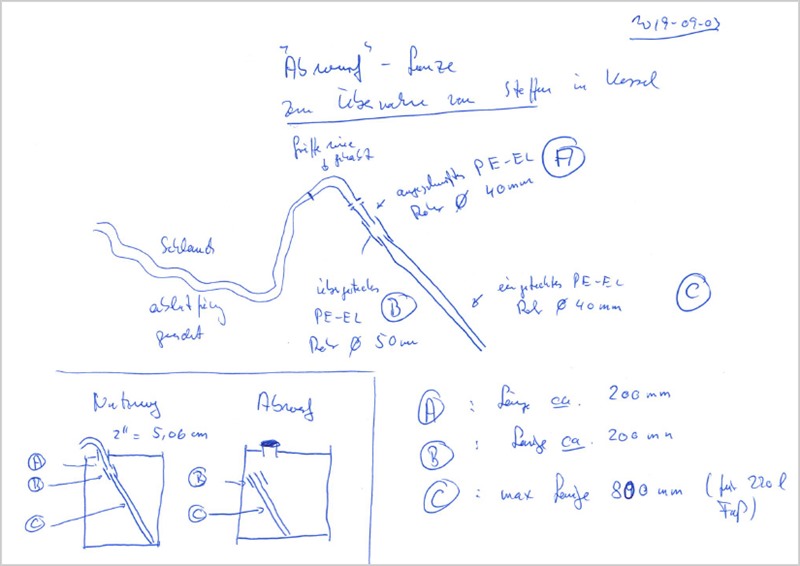 2019-09-03
"Abwurf" - Lanze
zum Übernahme von Stoffen in Kessel
Schlauch
ableitfähig
geerdet
angeschweißtes PE-EL
Rohr Ø 40mm
A
übergestecktes
PE-EL
Rohr Ø 50mm
B
eingestecktes PE-EL
Rohr Ø 40mm
C
Nutzung
2" = 5,06 cm
A
B
C
Abwurf
B
C
A : Länge ca. 200 mm
B : Länge ca. 200 mm
C : max Länge 800 mm (für 220 l
Faß)